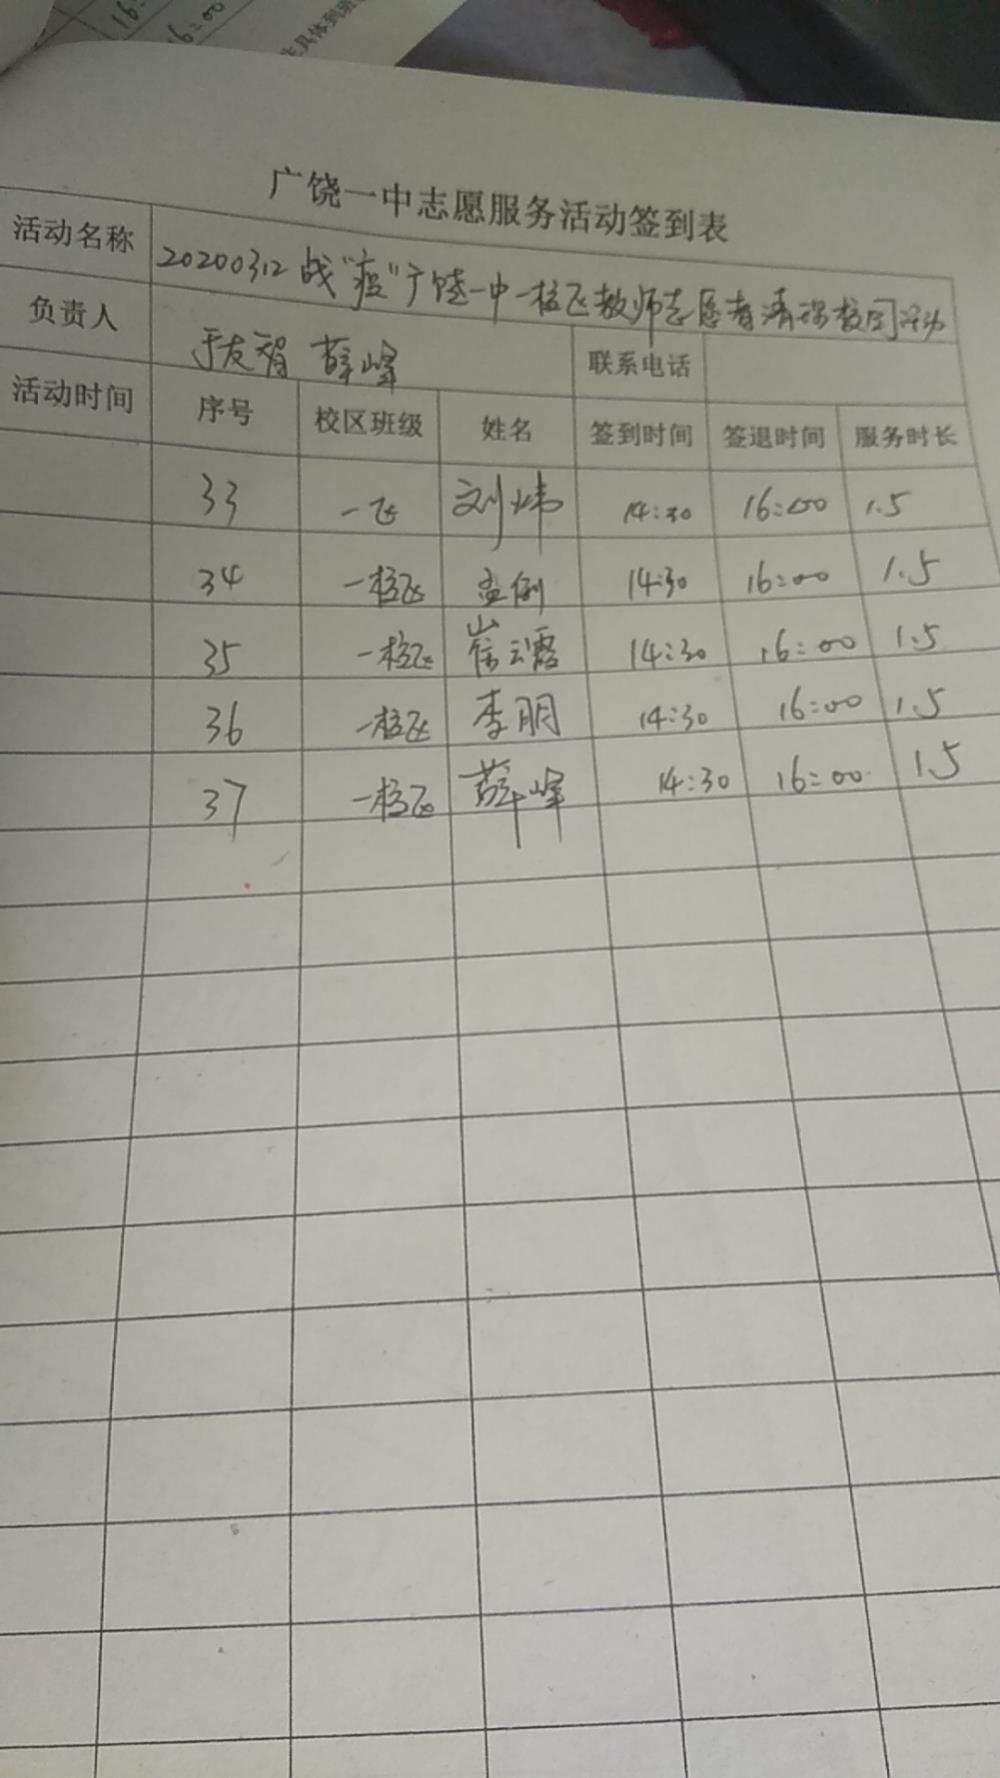 16:00
生具体到班
广饶一中志愿服务活动签到表
活动名称 20200312 战"疫"广饶一中一校区教师志愿者清扫校园活动
负责人 于友智 薛峰 联系电话
活动时间 序号 校区班级 姓名 签到时间 签退时间 服务时长
33 一区 刘炜 14:30 16:00 1.5
34 一校区 孟俐 14:30 16:00 1.5
35 一校区 崔云霞 14:30 16:00 1.5
36 一校区 李朋 14:30 16:00 1.5
37 一校区 薛峰 14:30 16:00 1.5